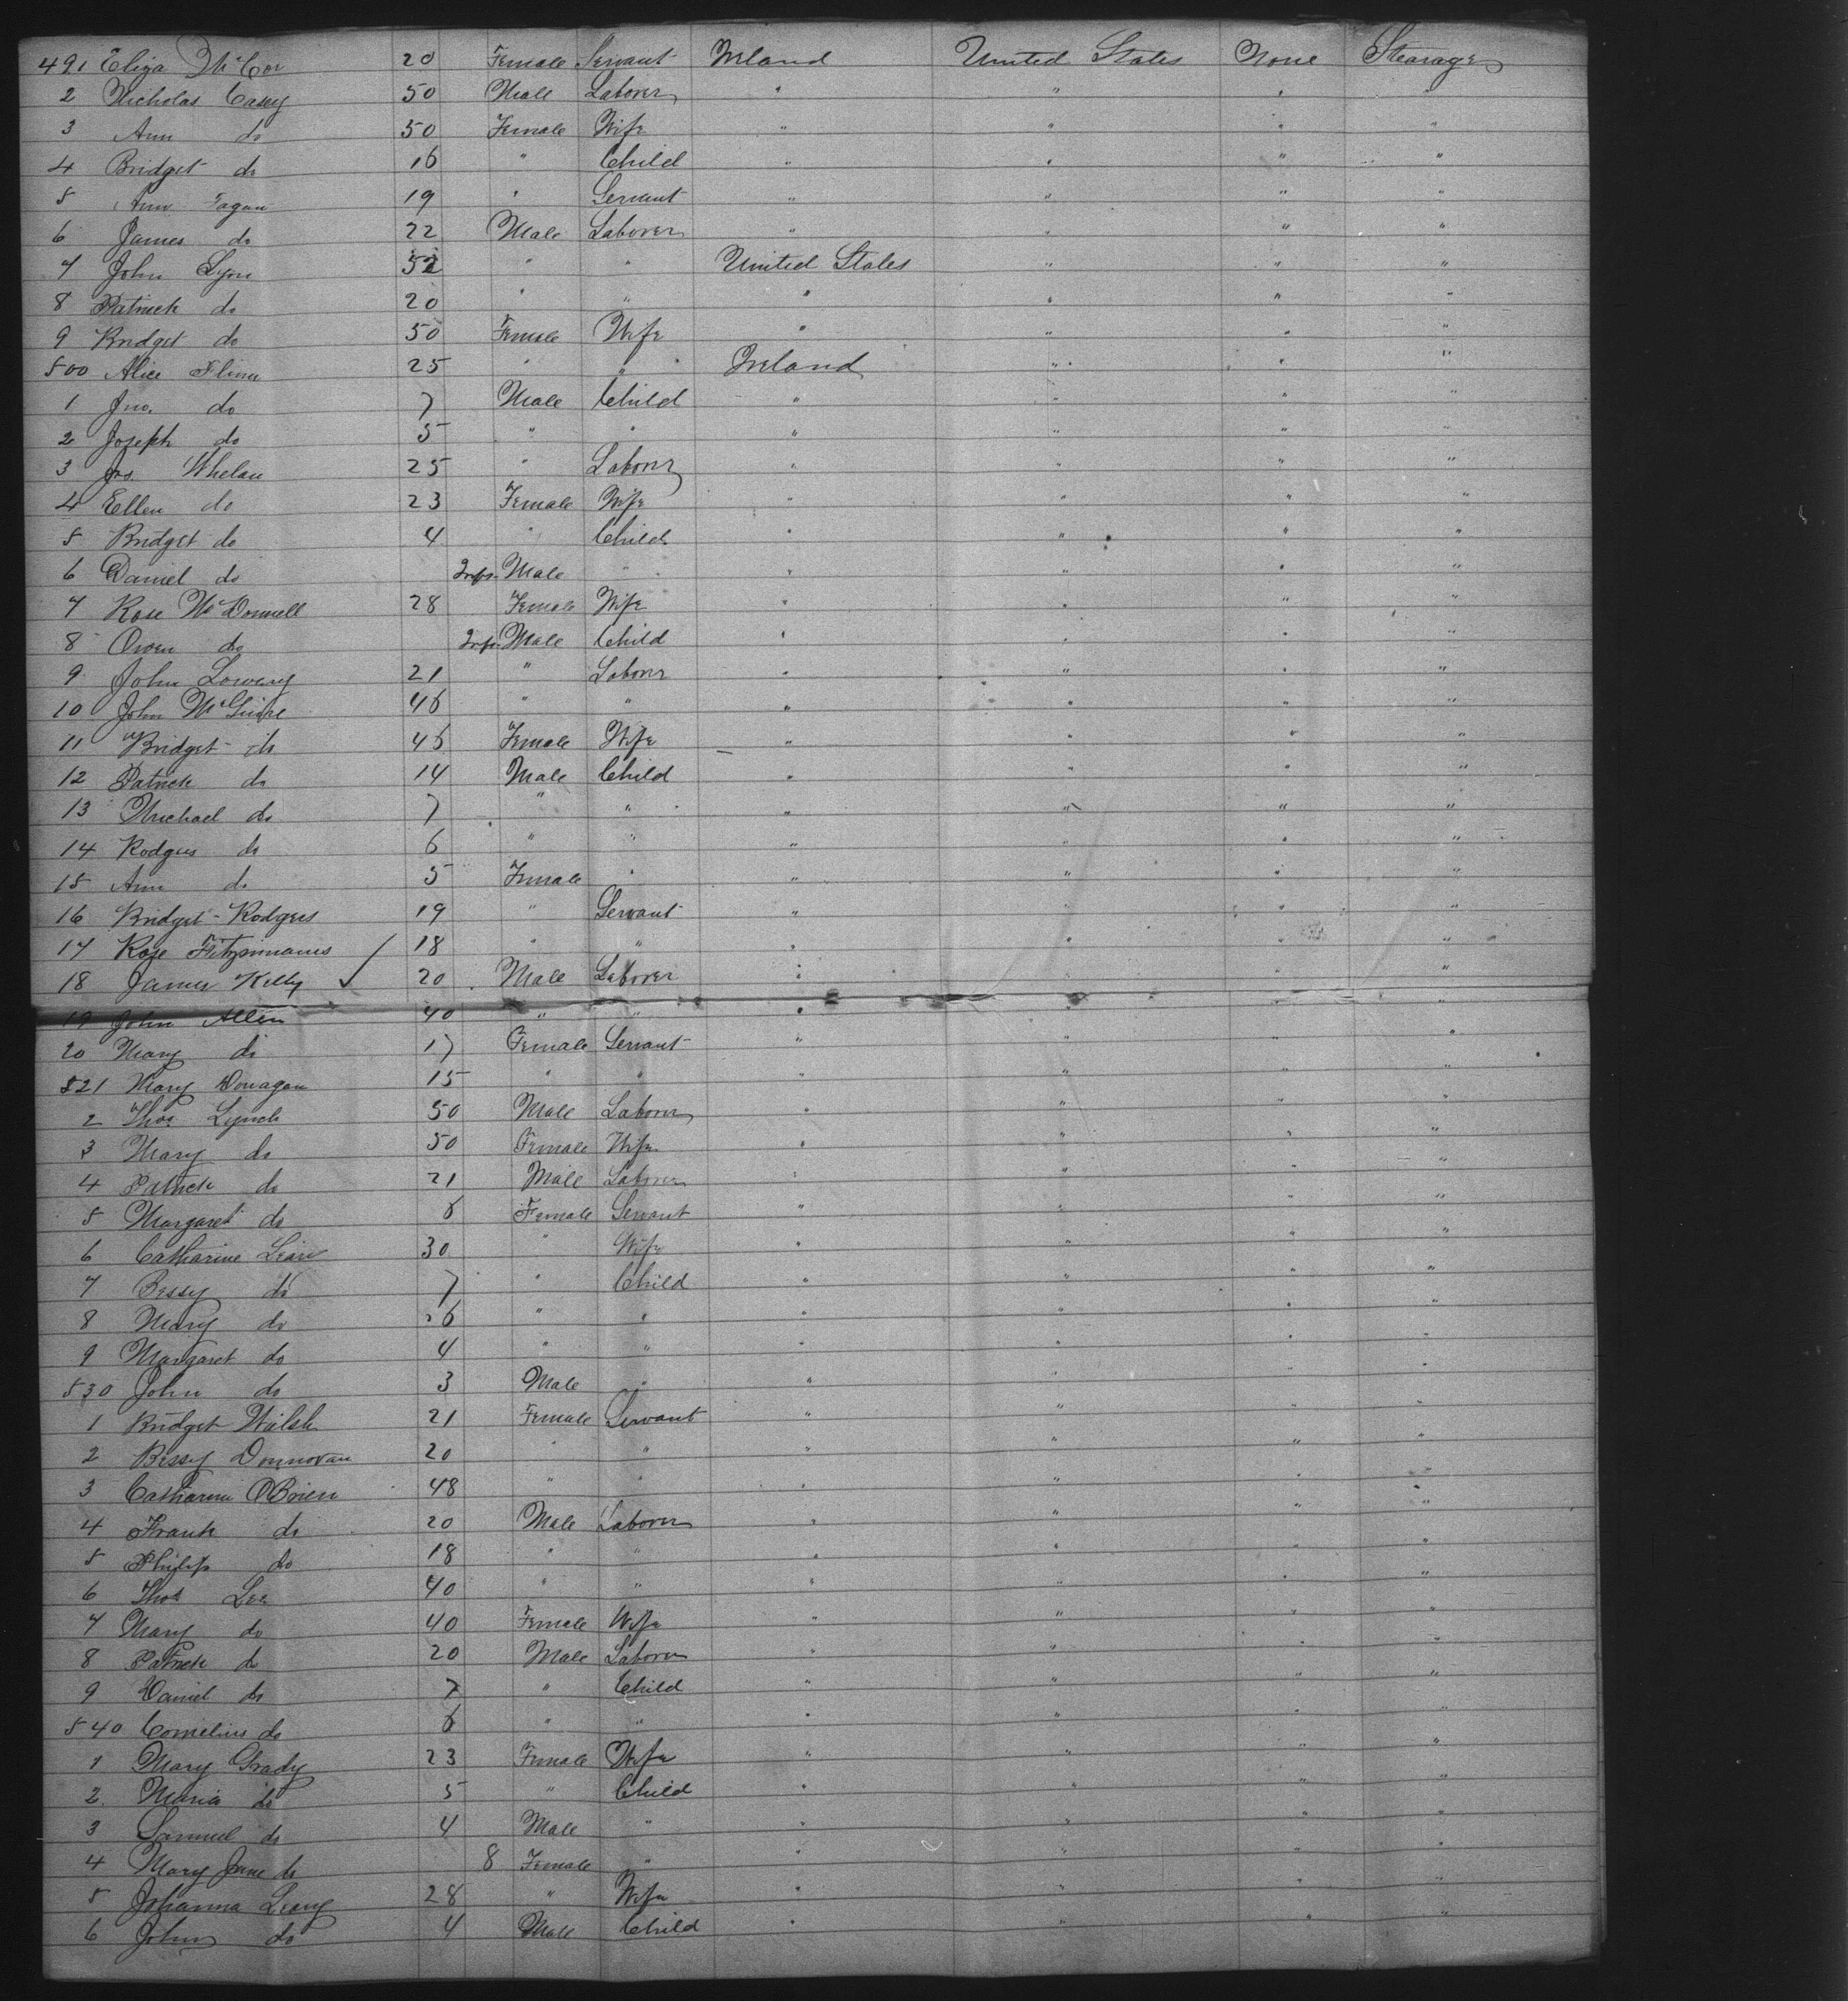 491 Eliza McCor 20 Female Servant Ireland United States None Stearage
2 Nicholas Casey 50 Male Laborer " " " "
3 Ann do 50 Female Wife " " " "
4 Bridget do 16 " Child " " " "
5 Ann Fagan 19 " Servant " " " "
6 James do 22 Male Laborer " " " "
7 John Lyon 52 " " United States " " "
8 Patrick do 20 " " " " " "
9 Bridget do 50 Female Wife " " " "
500 Alice Flinn 25 " " Ireland " " "
1 Jno. do 7 Male Child " " " "
2 Joseph do 5 " " " " " "
3 Jas. Whelan 25 " Laborer " " " "
4 Ellen do 23 Female Wife " " " "
5 Bridget do 4 " Child " " " "
6 Daniel do Inft. Male " " " " "
7 Rose McDonnell 28 Female Wife " " " "
8 Owen do Inft. Male Child " " " "
9 John Lowery 21 " Laborer " " " "
10 John McGuire 46 " " " " " "
11 Bridget do 46 Female Wife " " " "
12 Patrick do 14 Male Child " " " "
13 Michael do 7 " " " " " "
14 Rodgers do 6 " " " " " "
15 Ann do 5 Female " " " " "
16 Bridget Rodgers 19 " Servant " " " "
17 Rose Fitzsimmons 18 " " " " " "
18 James Kelly 20 Male Laborer " " " "
19 John Allen 40 " " " " " "
20 Mary do 17 Female Servant " " " "
521 Mary Donagan 15 " " " " " "
2 Thos Lynch 50 Male Laborer " " " "
3 Mary do 50 Female Wife " " " "
4 Patrick do 21 Male Laborer " " " "
5 Margaret do 6 Female Servant " " " "
6 Catharine 30 " Wife " " " "
7 Bessy do 7 " Child " " " "
8 Mary do 6 " " " " " "
9 Margaret do 4 " " " " " "
530 John do 3 Male " " " " "
1 Bridget Walsh 21 Female Servant " " " "
2 Bessy Donnovan 20 " " " " " "
3 Catharine OBrien 48 " " " " " "
4 Frank do 20 Male Laborer " " " "
5 Philip do 18 " " " " " "
6 Thos Lee 40 " " " " " "
7 Mary do 40 Female Wife " " " "
8 Patrick do 20 Male Laborer " " " "
9 Daniel do 7 " Child " " " "
540 Cornelius do 6 " " " " " "
1 Mary Grady 23 Female Wife " " " "
2 Maria do 5 " Child " " " "
3 Samuel do 4 Male " " " " "
4 Mary Jane do 8 Female " " " " "
5 Johanna Leary 28 " Wife " " " "
6 John do 4 Male Child " " " "